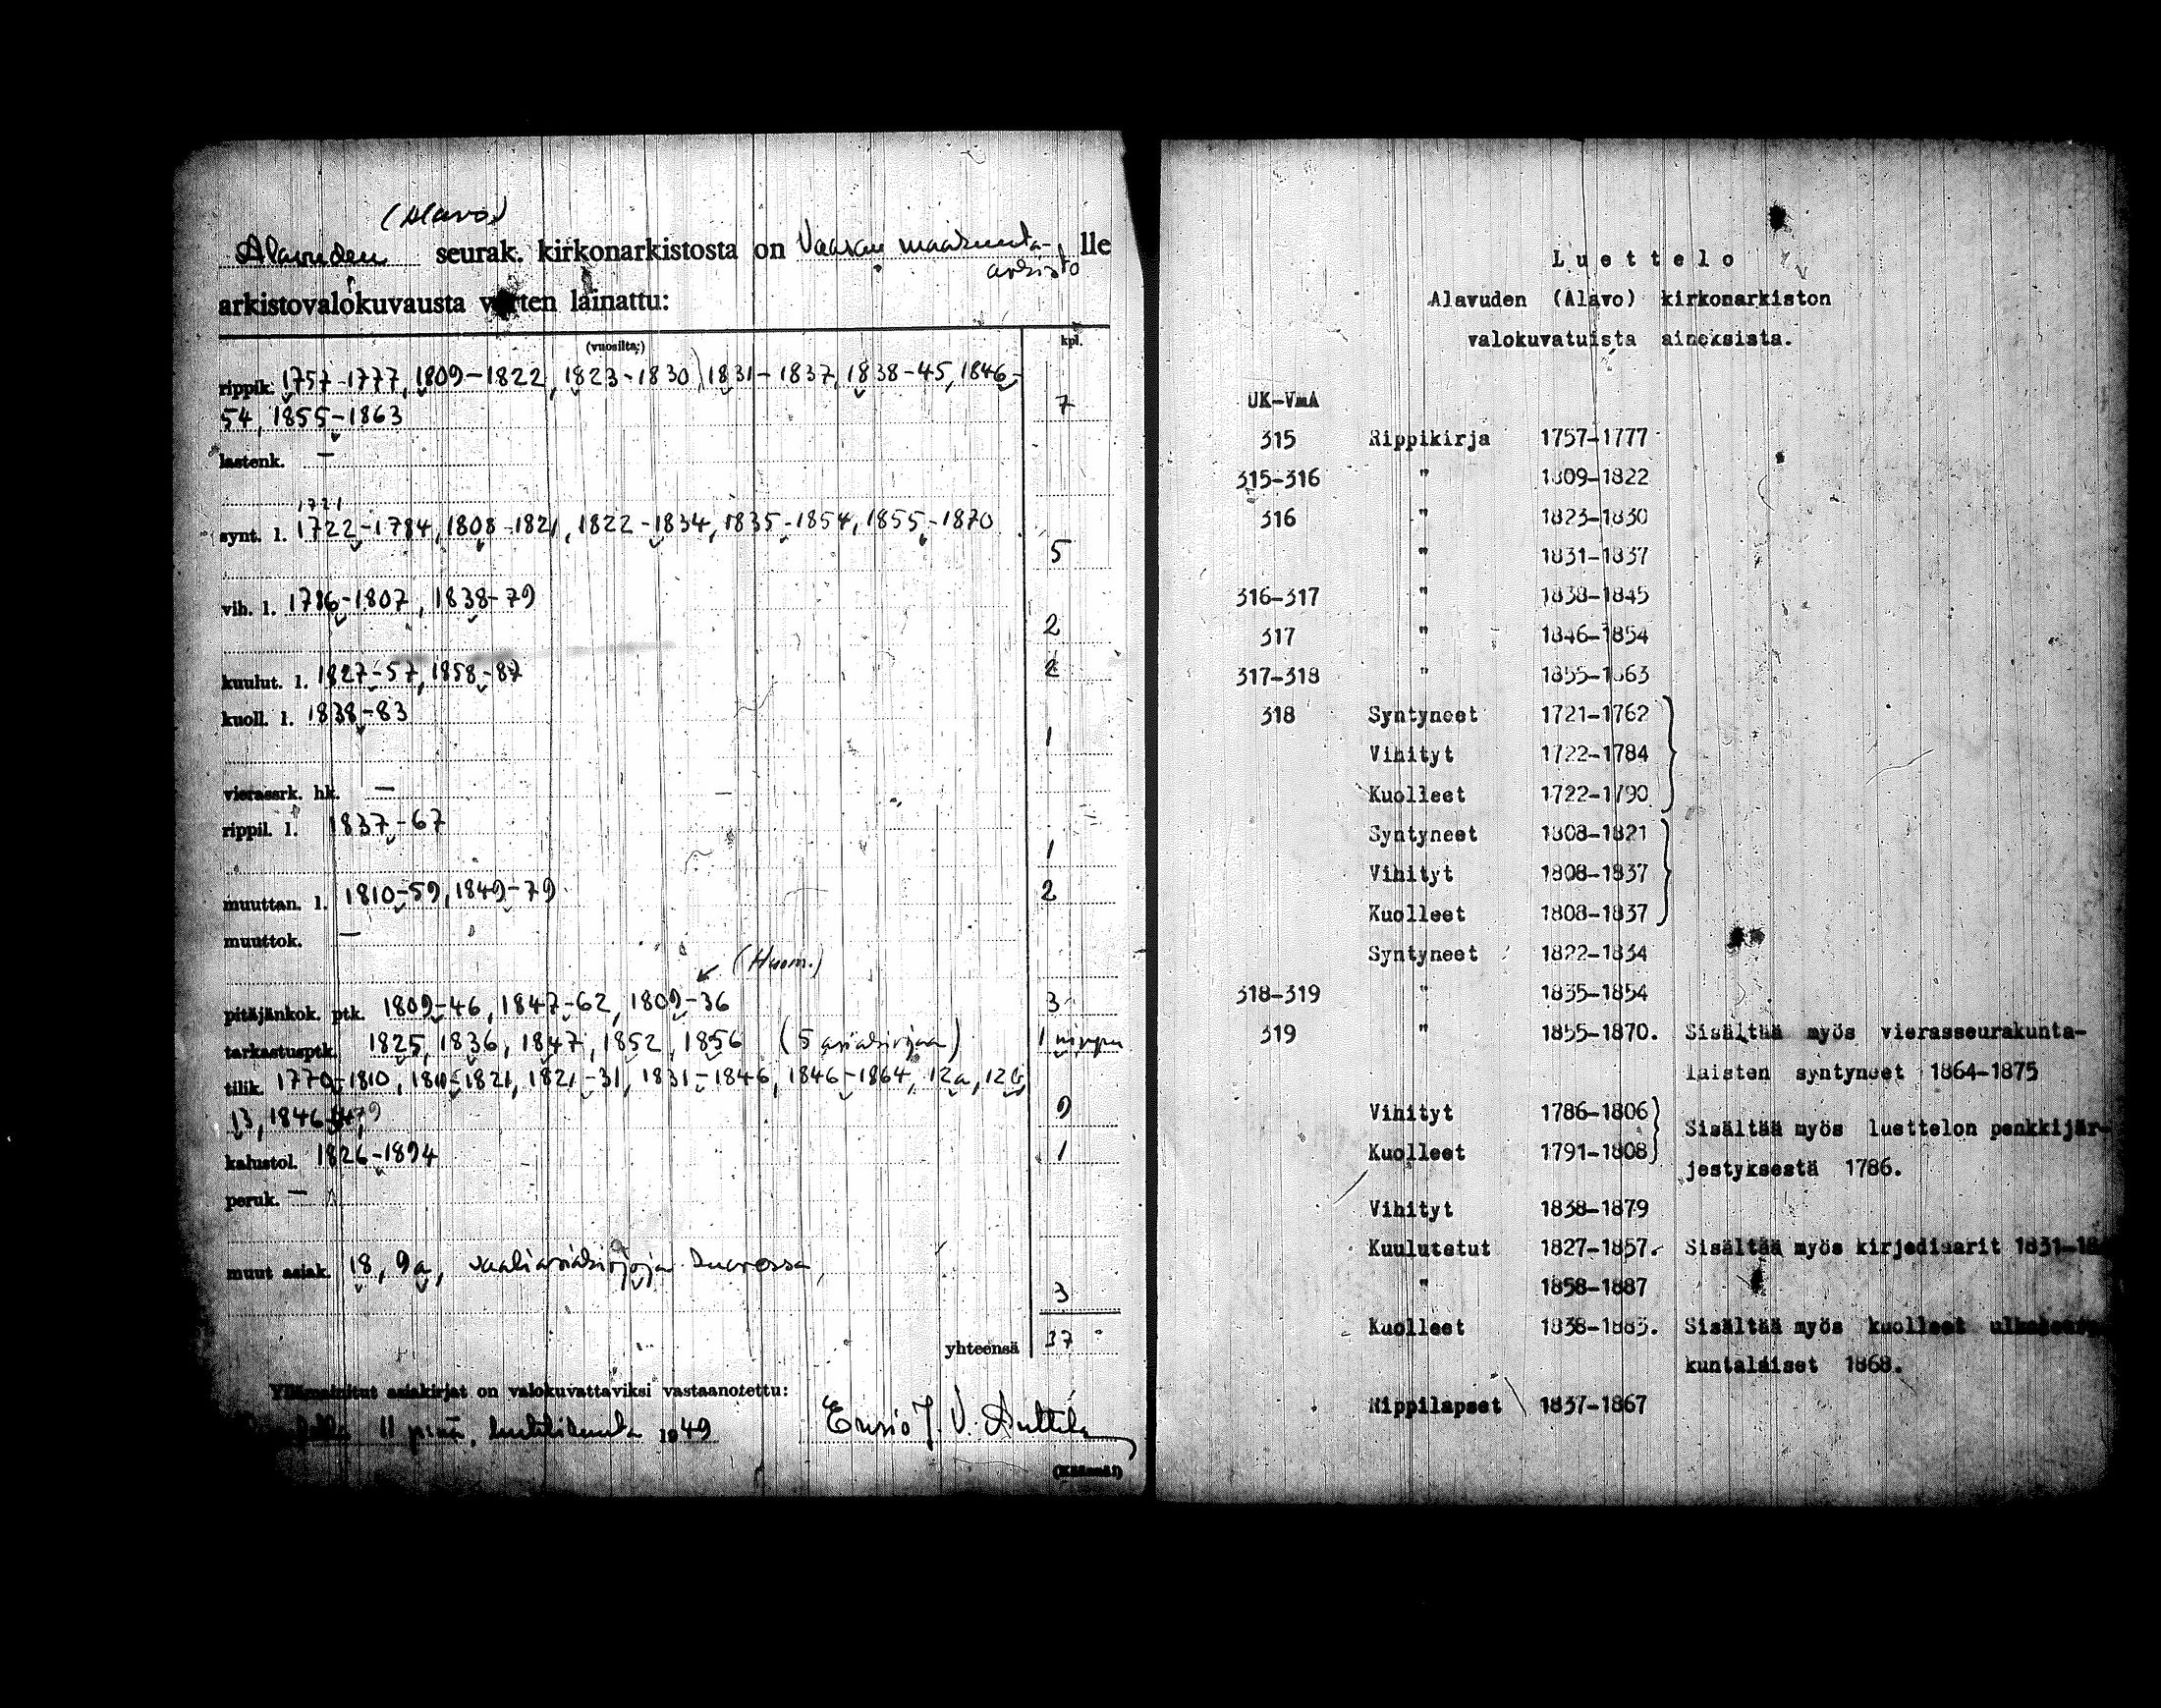 (Alavo)
Alavuden seurak. kirkonarkistosta on Vaasan maakunta- lle
arkisto
arkistovalokuvausta varten lainattu:
(vuosilta:) kpl.
rippik. 1757-1777, 1809-1822, 1823-1830, 1831-1837, 1838-45, 1846-
54, 1855-1863 7
lastenk. —
1721
synt. l. 1722-1784, 1808-1821, 1822-1834, 1835-1854, 1855-1870
5
vih. l. 1786-1807, 1838-79
2
kuulut. l. 1827-57, 1858-87 2
kuoll. l. 1838-83
1
vierassrk. hk. —
rippil. l. 1837-67
1
muuttan. l. 1810-59, 1849-79 2
muuttok. —
(Huom.)
pitäjänkok. ptk. 1809-46, 1847-62, 1809-36 3
tarkastusptk. 1825, 1836, 1847, 1852, 1856 (5 asiakirjaa) 1 nippu
tilik. 1770-1810, 1810-1821, 1821-31, 1831-1846, 1846-1864, 12a, 12b,
13, 1846 9
kalustol. 1826-1894 1
peruk. —
muut asiak. 18, 9a, vaaliasiakirjoja
3
yhteensä 37
Yllämainitut asiakirjat on valokuvattaviksi vastaanotettu:
11 p:nä, huhtikuuta 1949 Ensio J. V. Anttila
(Käännä!)
Luettelo
Alavuden (Alavo) kirkonarkiston
valokuvatuista aineksista.
UK-VmA
315 Rippikirja 1757-1777
315-316 " 1809-1822
316 " 1823-1830
" 1831-1837
316-317 " 1838-1845
317 " 1846-1854
317-318 " 1855-1863
318 Syntyneet 1721-1762
Vihityt 1722-1784
Kuolleet 1722-1790
Syntyneet 1808-1821
Vihityt 1808-1837
Kuolleet 1808-1837
Syntyneet 1822-1834
318-319 " 1835-1854
319 " 1855-1870. Sisältää myös vierasseurakunta-
laisten syntyneet 1864-1875
Vihityt 1786-1806
Sisältää myös luettelon penkkijär-
Kuolleet 1791-1808
jestyksestä 1786.
Vihityt 1838-1879
Kuulutetut 1827-1857. Sisältää myös kirjedisarit 1831-
" 1858-1887
Kuolleet 1838-1883. Sisältää myös kuolleet
kuntalaiset 1868.
Rippilapset 1837-1867